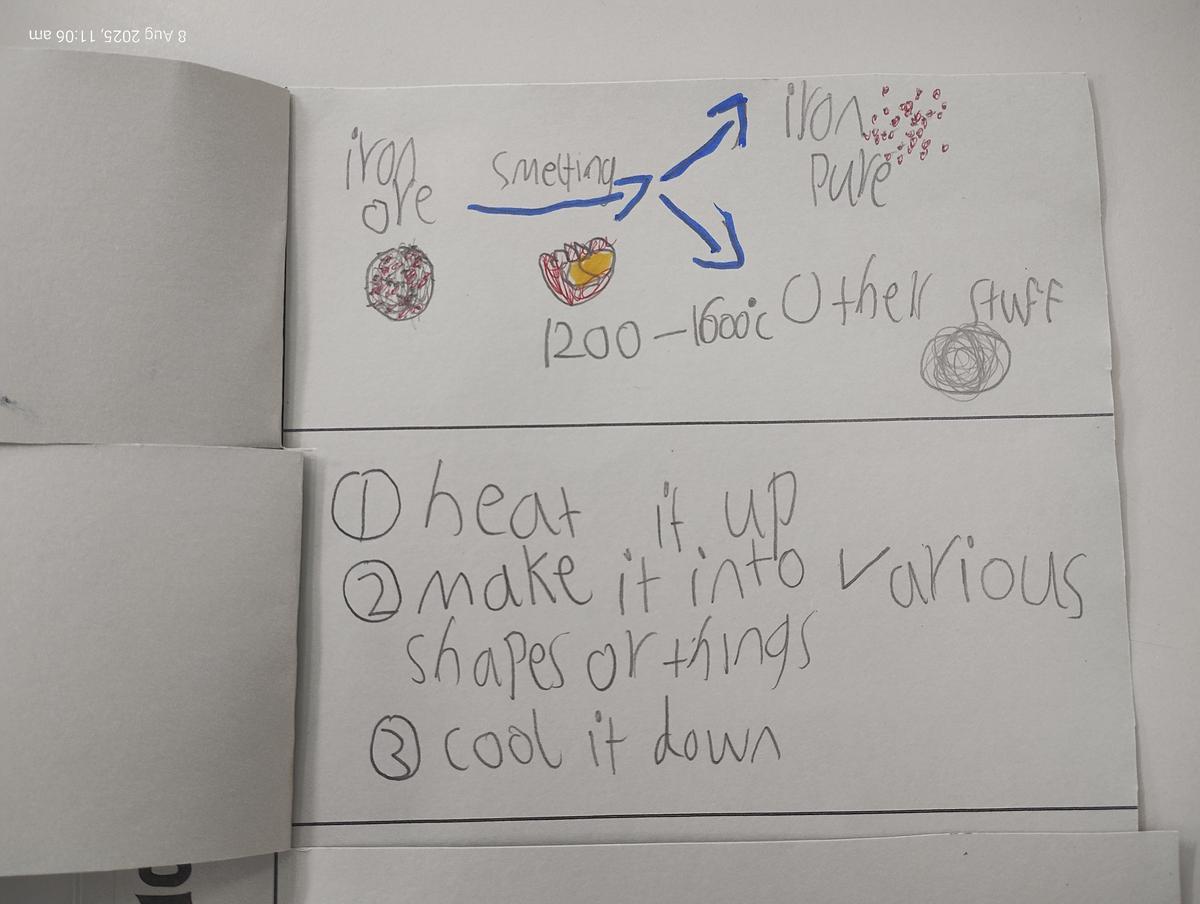 8 Aug 2025, 11:06 am
iron
ore
smelting
1200 - 1600°c
iron
pure
Other stuff
① heat it up
② make it into various
shapes or things
③ cool it down